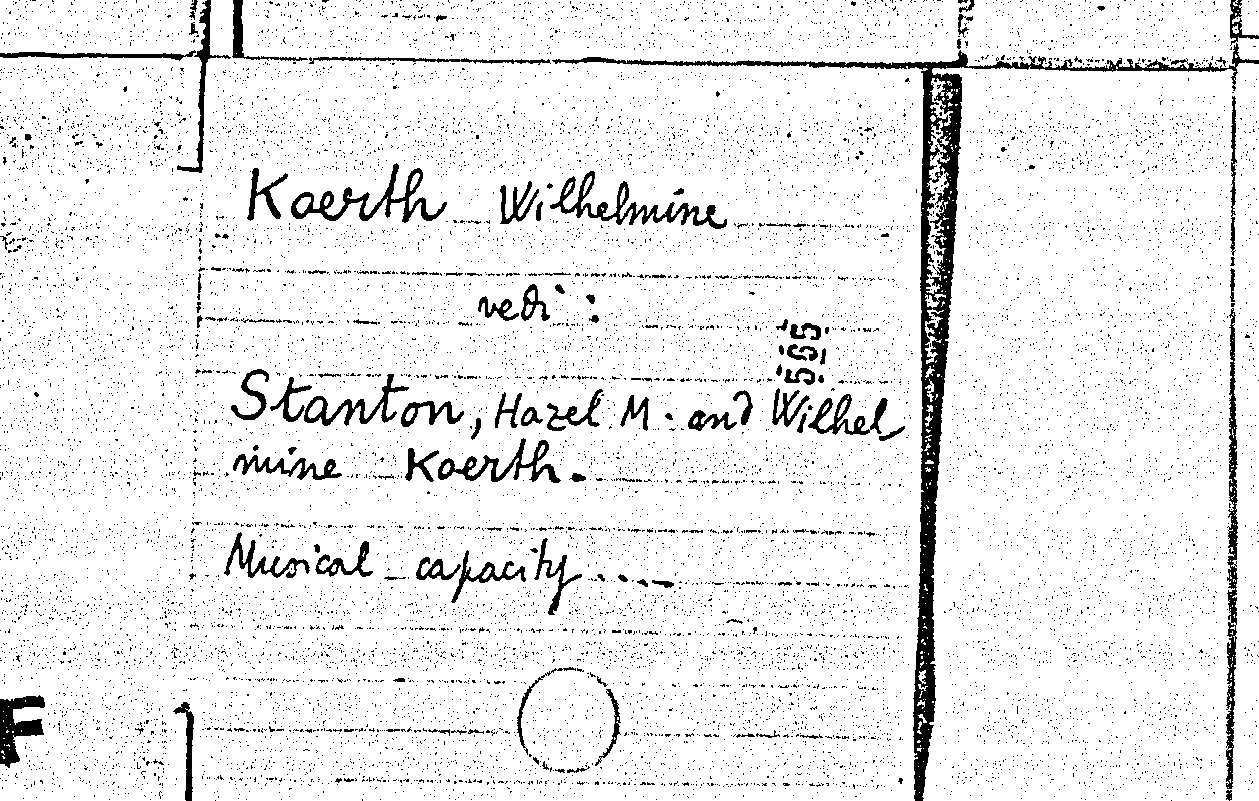 Koerth Wilhelmine
vedi:
565
Stanton, Hazel M. and Wilhel
mine Koerth.
Musical capacity....
F